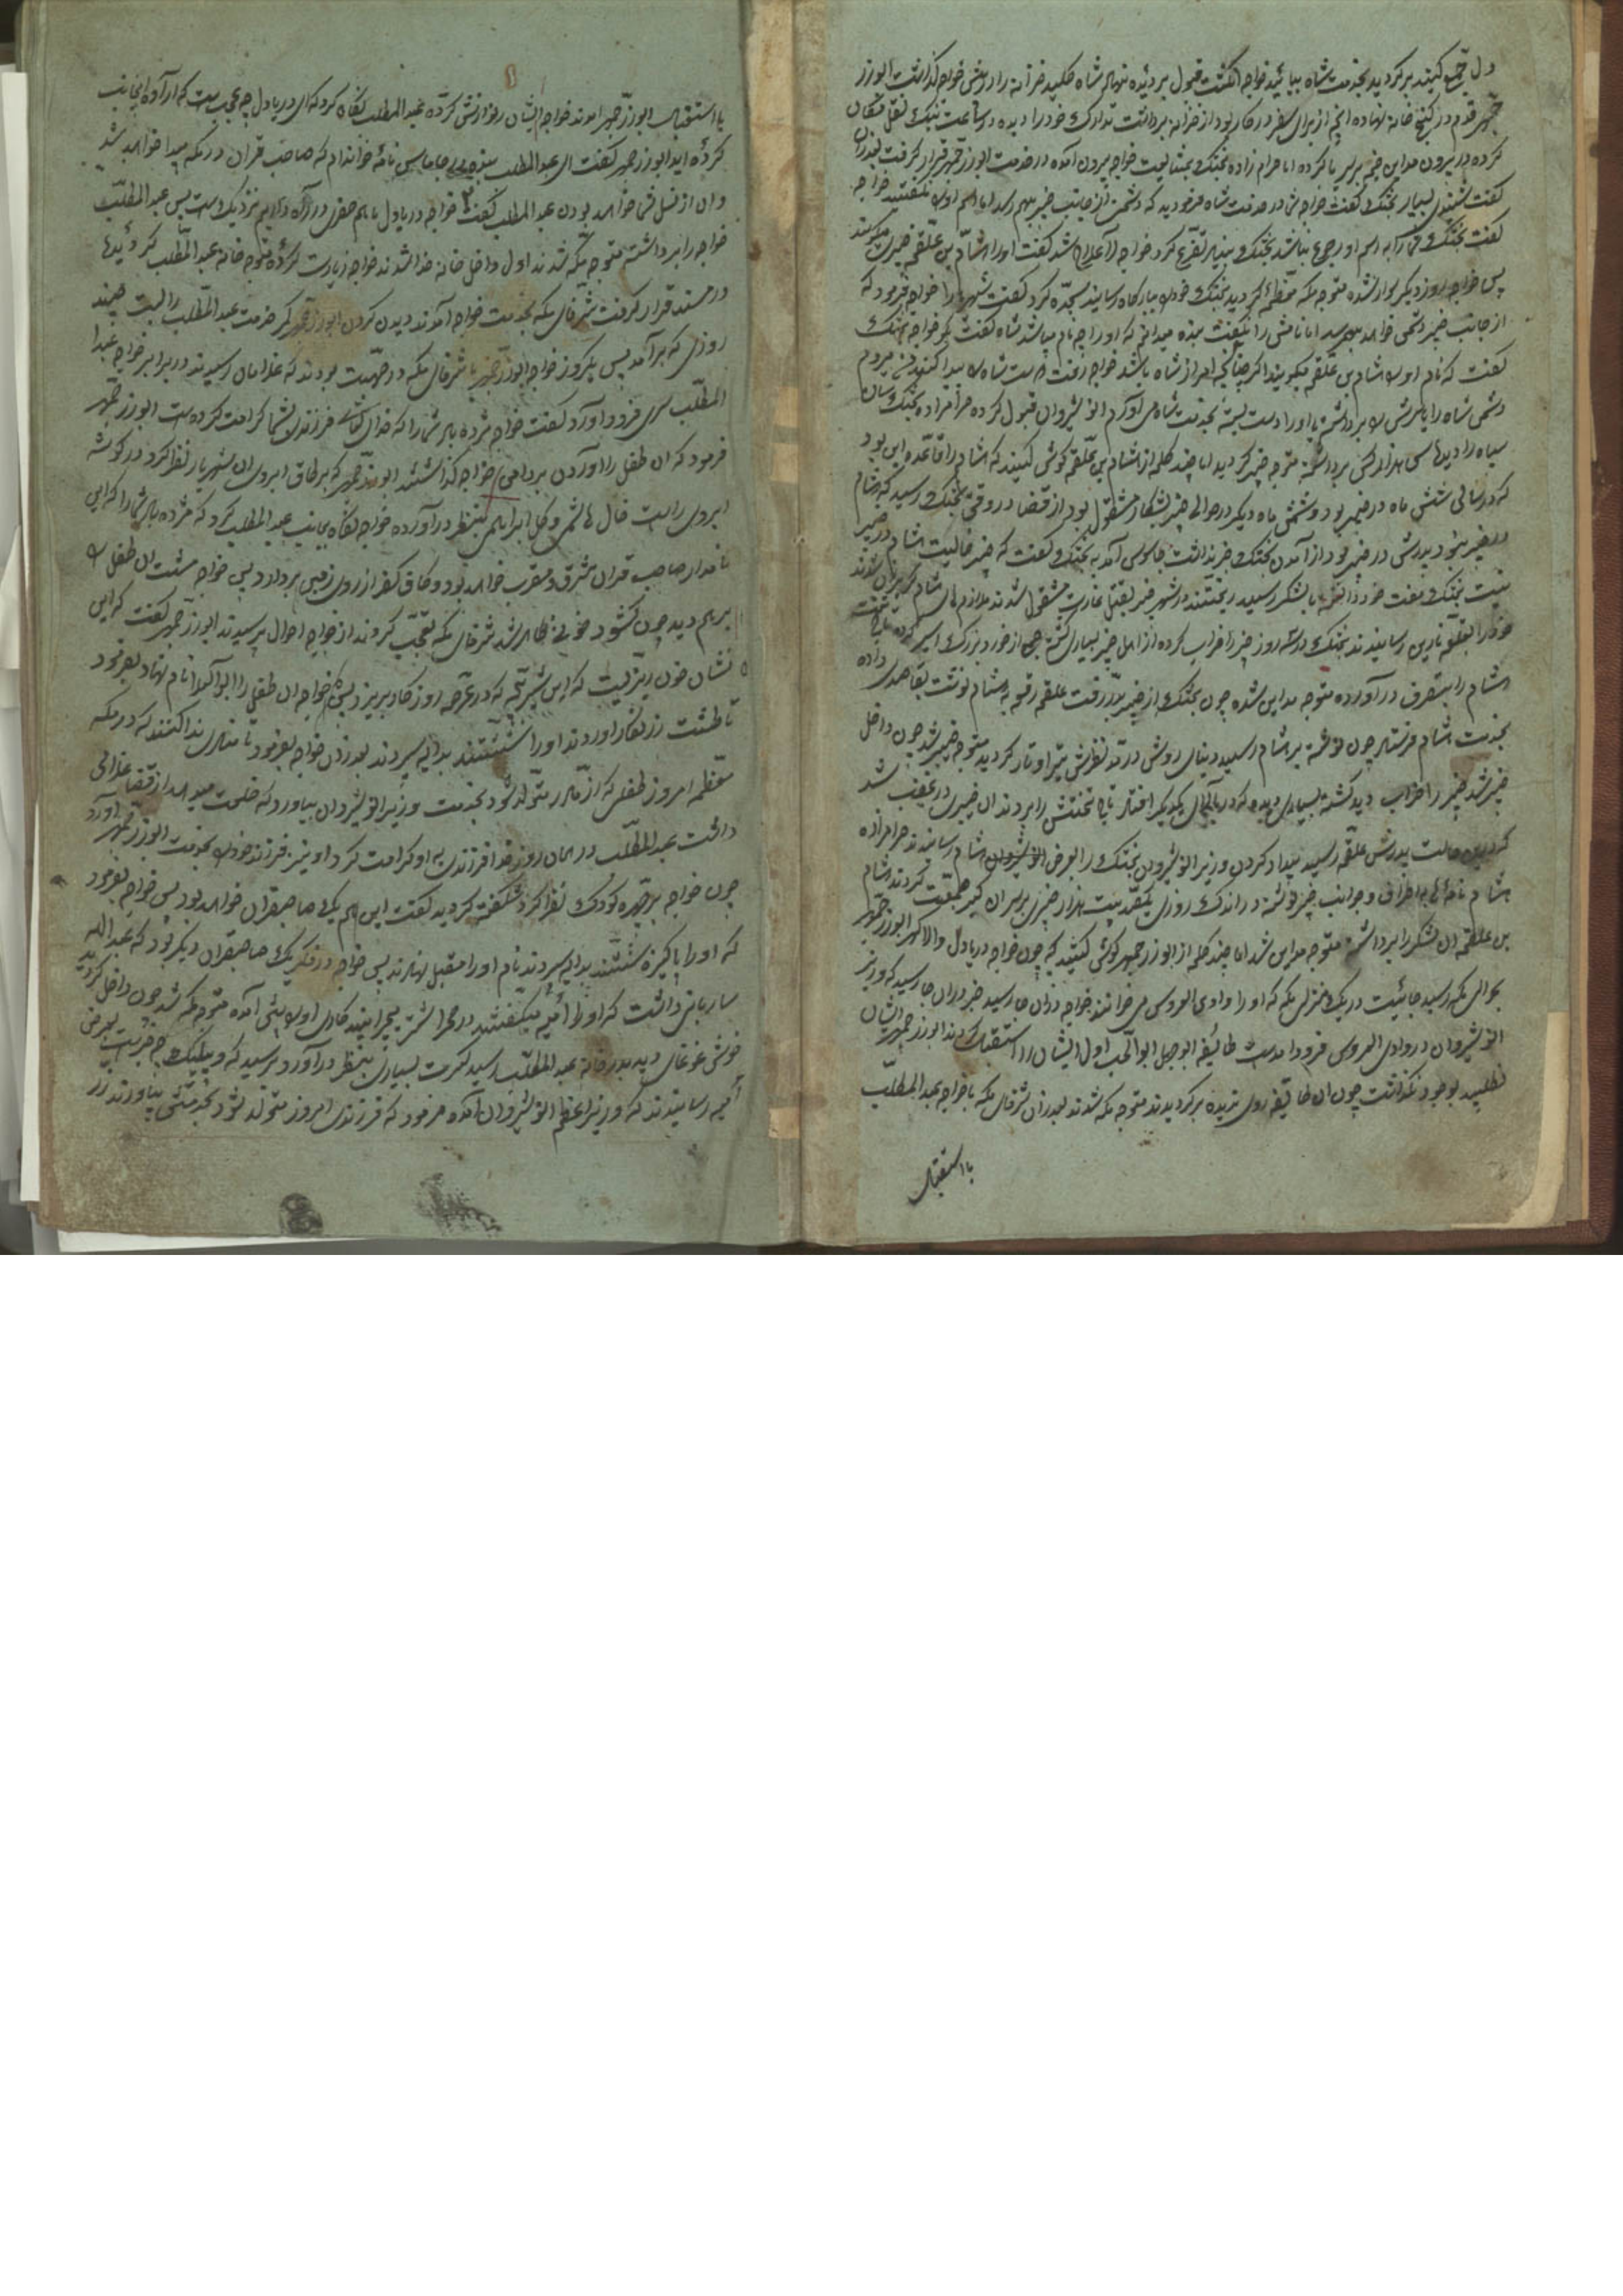 دل جمع کنید برگردید بخدمت شاه بیائید خواجه انگشت قبول بر دیده نهاد شاه کلید خزانه را در پیش خواجه گذاشت ابوزر
جمهر قدم در گنج خانه نهاده آنچه از برای سفر در کار بود از خزانه برداشت تدارک خود را دیده در ساعت نیک نقل مکان
کرده در بیرون مداین خیمه بر سر پا کرده اما حرام زاده بختک بختیا خواجه بیرون آمده در خدمت ابوزرجمهر قرار گرفت
گفت بسیار بختک گفت خواجه در خدمت شاه فرمودید که دشمن از جانب خیبر بهم رسد اما اسم او را نگفتید خواجه
گفت بختک شما را به اسم او رجوع نباشد بختک بنیاد تضرع کرد خواجه را لاعلاج شد گفت او را هشام بن علقمه خیبری میگویند
پس خواجه روز دیگر سوار شده متوجه مکه معظمه گردید بختک خود را ببارگاه رسانید سجده کرد گفت شهریارا خواجه فرمود که
از جانب خیبر دشمن خواهد بهم رسید اما نامش را نگفت بنده میدانم که او را چه نام میباشد شاه گفت بگو خواجه بختک
گفت که نام او را هشام بن علقمه میگویند اگر چنانچه امر از شاه باشد
دشمن شاه را با پدرش سر برداشته یا او را دست بسته بخدمت شاه می آورم انوشیروان قبول کرده حرامزاده بختک سان
سپاه را دیده سی هزار کس برداشته متوجه خیبر گردید اما چند کلمه از هشام بن علقمه گوش کنید که هشام را قاعده این بود
که در سالی شش ماه در خیبر بود و شش ماه دیگر در حوالی خیبر بشکار مشغول بود از قضا در وقتی بختک رسید که هشام
در خیبر نبود پدرش در خیبر بود از آمدن بختک خبر نداشت جاسوس آمد به بختک گفت که خیبر خالیست هشام در خیبر
نیست بختک با لشکر رسید ریختند در شهر خیبر بقتل غارت مشغول شدند ملازمهای هشام گریزان شدند
خود را بقلعه رسانیدند بختک در سه روز خیبر را خراب کرده از اهل خیبر بسیاری کشته جمعی از خورد و بزرگ اسیر کرده تاج تخت
هشام را بتصرف در آورده متوجه مداین شده چون بختک از خیبر بدر رفت علقمه رقعه به هشام نوشت بقاصدی داده
بخدمت هشام فرستاد چون نوشته بر هشام رسید دنیای روشن در مد نظرش تیره و تار گردید متوجه خیبر شد چون داخل
خیبر شد خیبر را خراب دید کشته بسیاری دیده که در بالای یکدیگر افتاده تاج تختش را بردند آن خیبری در غضب شد
پدرش علقمه رسید بیداد کردن وزیر انوشیروان بختک را بعرض هشام رسانیدند حرامزاده
هشام نامه ها به اطراف و جوانب خیبر نوشته در اندک روزی یکصد بیست هزار خیبری بر سر آن گبر جمعیت کردند هشام
بن علقمه آن لشکر را برداشته متوجه مداین شد اما چند کلمه از ابوزرجمهر گوش کنید که چون خواجه دریادل والا گهر ابوزرجمهر
بحوالی مکه رسید جائیست در یک منزلی مکه که او را وادی العروس می خوانند خواجه در آن جا رسید خبر در آن جا رسید که وزیر
انوشیروان در وادی العروس فرود آمده است طائیفه ابوجهل ابوالحب اول ایشان را استقبال کردند ابوزرجمهر ایشان
نطلبید بوجود نگذاشت چون آن طایفه روی ندیده برگردیدند متوجه مکه شدند بعد از آن شرفای مکه با خواجه عبدالمطلب
با استقبال
با استقبال ابوزرجمهر آمدند خواجه ایشان را نوازش کرده عبدالمطلب نگاه کرد که ای دریادل چه عجب است که اراده اینجانب
کرده اید ابوزرجمهر گفت ای عبدالمطلب بنده در جاماس نامه خوانده ام که صاحب قران در مکه پیدا خواهد شد
و آن از نسل شما خواهد بودن عبدالمطلب گفت خواجه دریادل ما هم حملی در راه داریم نزدیک است پس عبدالمطلب
خواجه را برداشته متوجه مکه شدند اول داخل خانه خدا شدند خواجه زیارت کرده متوجه خانه عبدالمطلب گردیدها
در مسند قرار گرفت شرفای مکه بخدمت خواجه آمدند دیدن کردن ابوزرجمهر کمر خدمت عبدالمطلب را بست چند
روزی که بر آمد پس یکروز خواجه ابوزرجمهر با شرفای مکه در صحبت بودند که غلامان رسیدند در برابر خواجه عبدا
المطلب سری فرود آورد گفت خواجه مژده باد شما را که خدای تعالی فرزندی بشما کرامت کرده است ابوزرجمهر
فرمود که آن طفل را آوردن بر دامن خواجه گذاشتند ابوزرجمهر که بر طاق ابروی آن شهریار نظر کرد در گوشه
ابروی راست خال هاشمی و کل ابراهیمی بنظر در آورده خواجه نگاه بجانب عبدالمطلب کرد که مژده باد شما را که این
نامدار صاحب قران مشرق و مغرب خواهد بود و کاف کفر از روی زمین بردارد پس خواجه مشت آن طفل را
بر هم دید چون گشود خونی ظاهر شد شرفای مکه تعجب کردند از خواجه احوال پرسیدند ابوزرجمهر گفت که این
نشان خون ریزیست که این شیر بچه که در عرصه روزگار بریزد پس خواجه آن طفل را ابوالعلا نام نهاد بفرمود
تا طشت زرنگار آوردند او را شستند بدایه سپردند بعد از آن خواجه بفرمود تا منادی ندا کنند که در مکه
معظمه امروز طفلی که از مادر متولد شود بخدمت وزیر انوشیروان بیاورد که خلعت میدهد از قضا غلامی
داشت عبدالمطلب در همان روز خدا فرزندی به او کرامت کرد او نیز فرزند خود را بخدمت ابوزرجمهر آورد
چون خواجه بر چهره کودک نظر کرد شکفته گردید گفت این هم یک صاحبقران خواهد بود پس خواجه بفرمود
که او را پاکیزه شستند بدایه سپردند نام او را مقبل نهادند پس خواجه در فکر یک صاحبقران دیگر بود که عبدالله
ساربانی داشت که او را امیه میگفتند در صحرا شتر میچرانید او را پیش آمده متوجه مکه شد چون داخل گردید
خوش غوغای دید بدر خانه عبدالمطلب رسید کثرت بسیاری بنظر در آورد پرسید که چه خبر است بعرض
امیه رسانیدند که وزیر اعظم انوشیروان آمده فرمود که فرزندی امروز متولد شود بخدمتش بیاورند زر